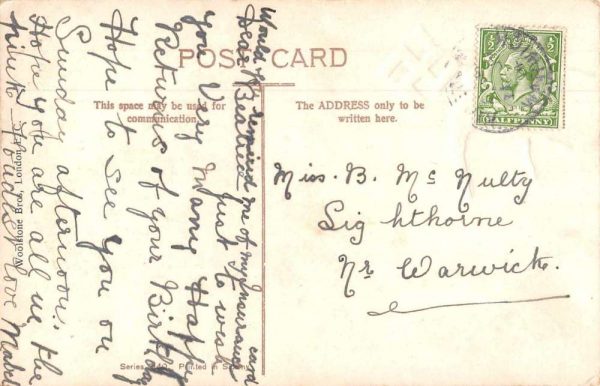 POST CARD
This space may be used for
communication.
The ADDRESS only to be
written here.
Would you remind me of my Insurance card
Dear Beatrice Just to wish
you Very Many Happy
Returns of your Birthday
Hope to See you on
Sunday afternoon.
Hope you are all in the
pink love Mabel
Miss. B. Mc Nulty
Lighthorne
Nr Warwick.
½ ½
HALFPENNY
Woolstone Bros., London, E.C.
Series Printed in Saxony